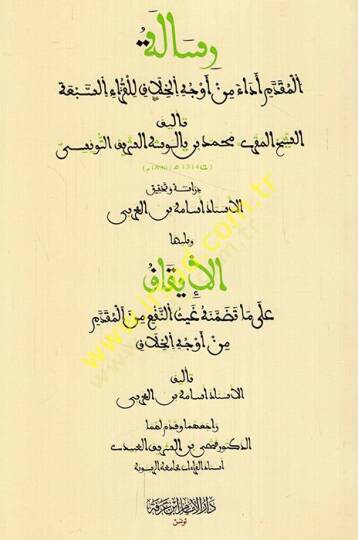 رسالة
المقدم أداء من أوجه الخلاف للقراء السبعة
تأليف
الشيخ المقرئ محمد بن يالوشه الشريف التونسي
(ت 1314 هـ / 1896 م)
دراسة وتحقيق
الأستاذ أسامة بن العربي
ويليها
الإيقاف
على ما تضمنه غيث النفع من المقدم
من أوجه الخلاف
تأليف
الأستاذ أسامة بن العربي
راجعهما وقدم لهما
الدكتور فتحي بن الشريف العبيدي
أستاذ القراءات بجامعة الزيتونة
دار الإمام ابن عرفة
تونس